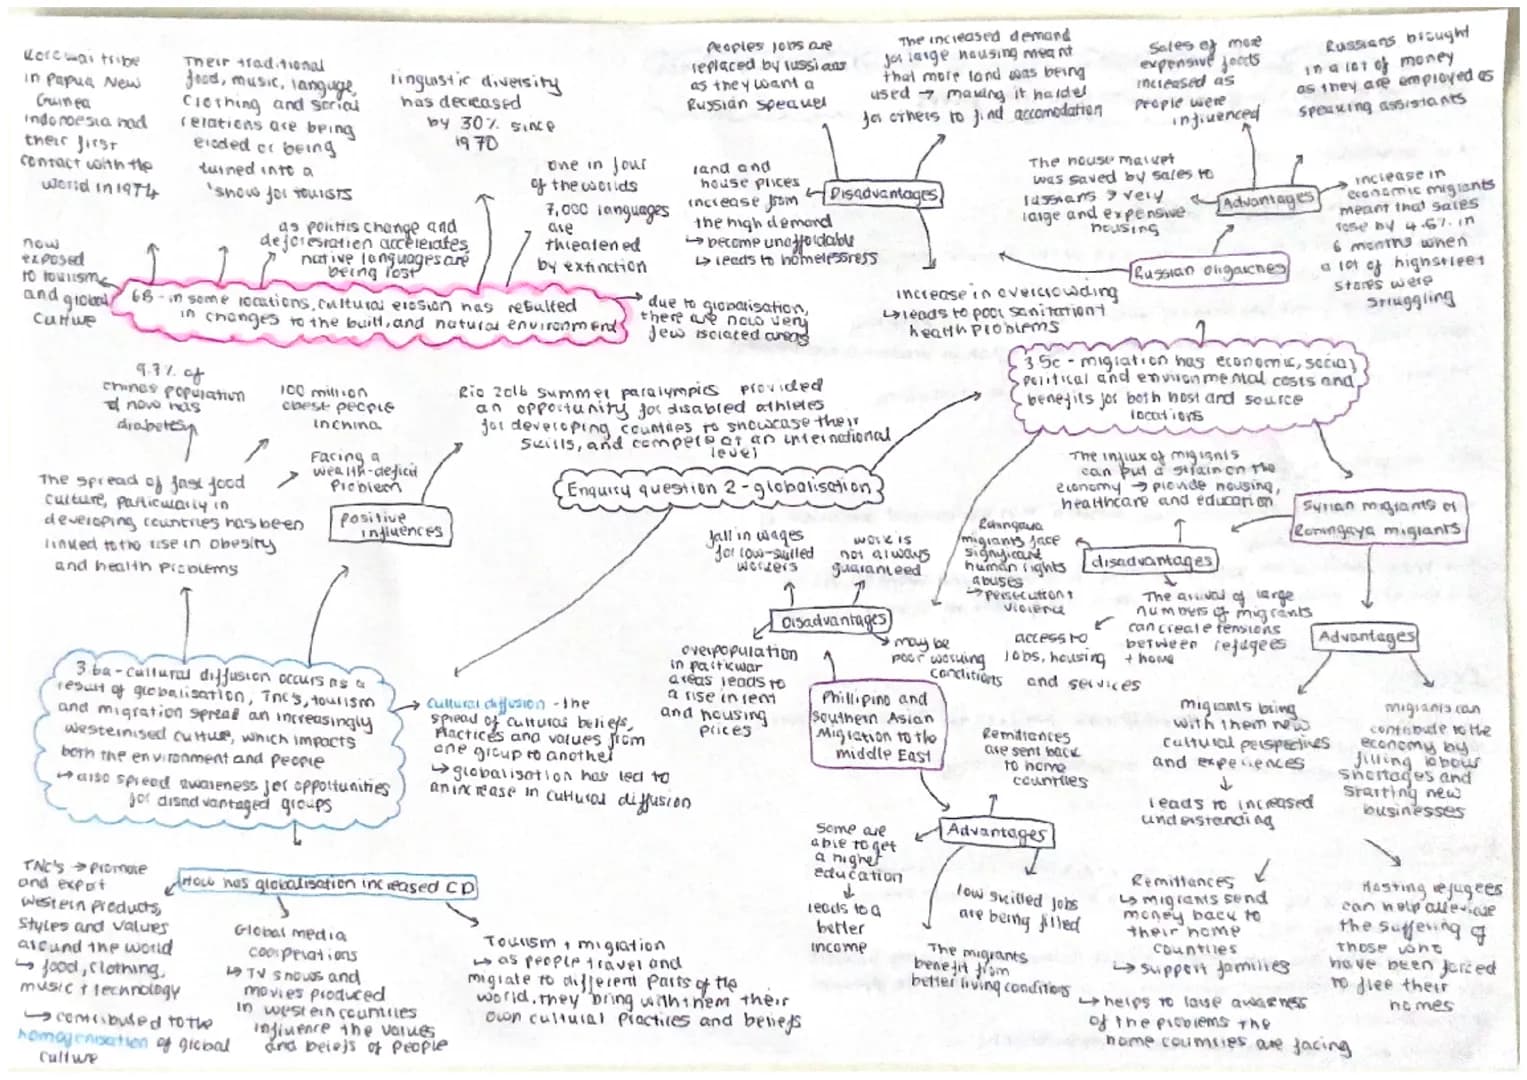 Korowai tribe
in Papua New
Guinea
Indonesia had
their first
contact with the
world in 1974
Their traditional
food, music, language,
clothing and social
relations are being
eroded or being
turned into a
'show for tourists
linguistic diversity
has decreased
by 30% since
1970
one in four
of the worlds
7,000 languages
are
threatened
by extinction
as politics change and
deforestation accelerates,
native languages are
being lost
now
exposed
to tourism
and global
culture
6B - in some locations, cultural erosion has resulted
in changes to the built, and natural environment
due to globalisation,
there are now very
few isolated areas
Peoples jobs are
replaced by russians
as they want a
Russian
The increased demand
for large housing meant
that more land was being
used → making it harder
for others to find accomodation
land and
house prices
increase from
the high demand
↳ become unaffordable
↳ leads to homelessness
Disadvantages
increase in overcrowding
↳ leads to poor sanitation +
health problems
Sales of more
expensive foods
increased as
people were
influenced
Russians brought
in a lot of money
as they are employed as
speaking assistants
The house market
was saved by sales to
russians → very
large and expensive
housing
Advantages
increase in
economic migrants
meant that sales
rose by 4.6% in
6 months when
a lot of highstreet
stores were
struggling
Russian oligarches
3.5c - migration has economic, social,
political and environmental costs and
benefits for both host and source
locations
9.3% of
chinas population
now has
diabetes
100 million
obese people
in china
Facing a
wealth-deficit
problem
The spread of fast food
culture, particularly in
developing countries has been
linked to the rise in obesity
and health problems
Rio 2016 summer paralympics provided
an opportunity for disabled athletes
for developing countries to showcase their
skills, and compete at an international
level
positive
influences
Enquiry question 2 - globalisation
3.6a - cultural diffusion occurs as a
result of globalisation, TNC's, tourism
and migration spread an increasingly
westernised culture, which impacts
both the environment and people
↳ also spread awareness for opportunities
for disadvantaged groups
cultural diffusion - the
spread of cultural beliefs,
practices and values from
one group to another
↳ globalisation has led to
an increase in cultural diffusion
How has globalisation increased CD
TNC's → promote
and export
western products,
styles and values
around the world
↳ food, clothing,
music + technology
↳ contributed to the
homogenisation of global
culture
Global media
cooprations
↳ TV shows and
movies produced
in western countries
influence the values
and beliefs of people
Tourism + migration
↳ as people travel and
migrate to different parts of the
world, they bring with them their
own cultural practices and beliefs
fall in wages
for low-skilled
workers
work is
not always
guaranteed
Disadvantages
overpopulation
in particular
areas leads to
a rise in rent
and housing
prices
may be
poor working
conditions
Phillipino and
southern Asian
Migration to the
middle East
Remittances
are sent back
to home
countries
Advantages
Some are
able to get
a higher
education
↓
leads to a
better
income
low skilled jobs
are being filled
The migrants
benefit from
better living conditions
The influx of migrants
can put a strain on the
economy → provide housing,
healthcare and education
Syrian migrants or
Roningaya migrants
Roningaya
migrants face
significant
human rights
abuses
→ persecution +
violence
disadvantages
The arrival of large
numbers of migrants
can create tensions
between refugees
+ home
access to
jobs, housing
and services
Advantages
migrants bring
with them new
cultural perspectives
and experiences
↓
leads to increased
understanding
migrants can
contribute to the
economy by
filling labour
shortages and
starting new
businesses
Remittances
↳ migrants send
money back to
their home
countries
↳ support families
↳ helps to raise awareness
of the problems the
home countries are facing
Hosting refugees
can help alleviate
the suffering of
those who
have been forced
to flee their
homes